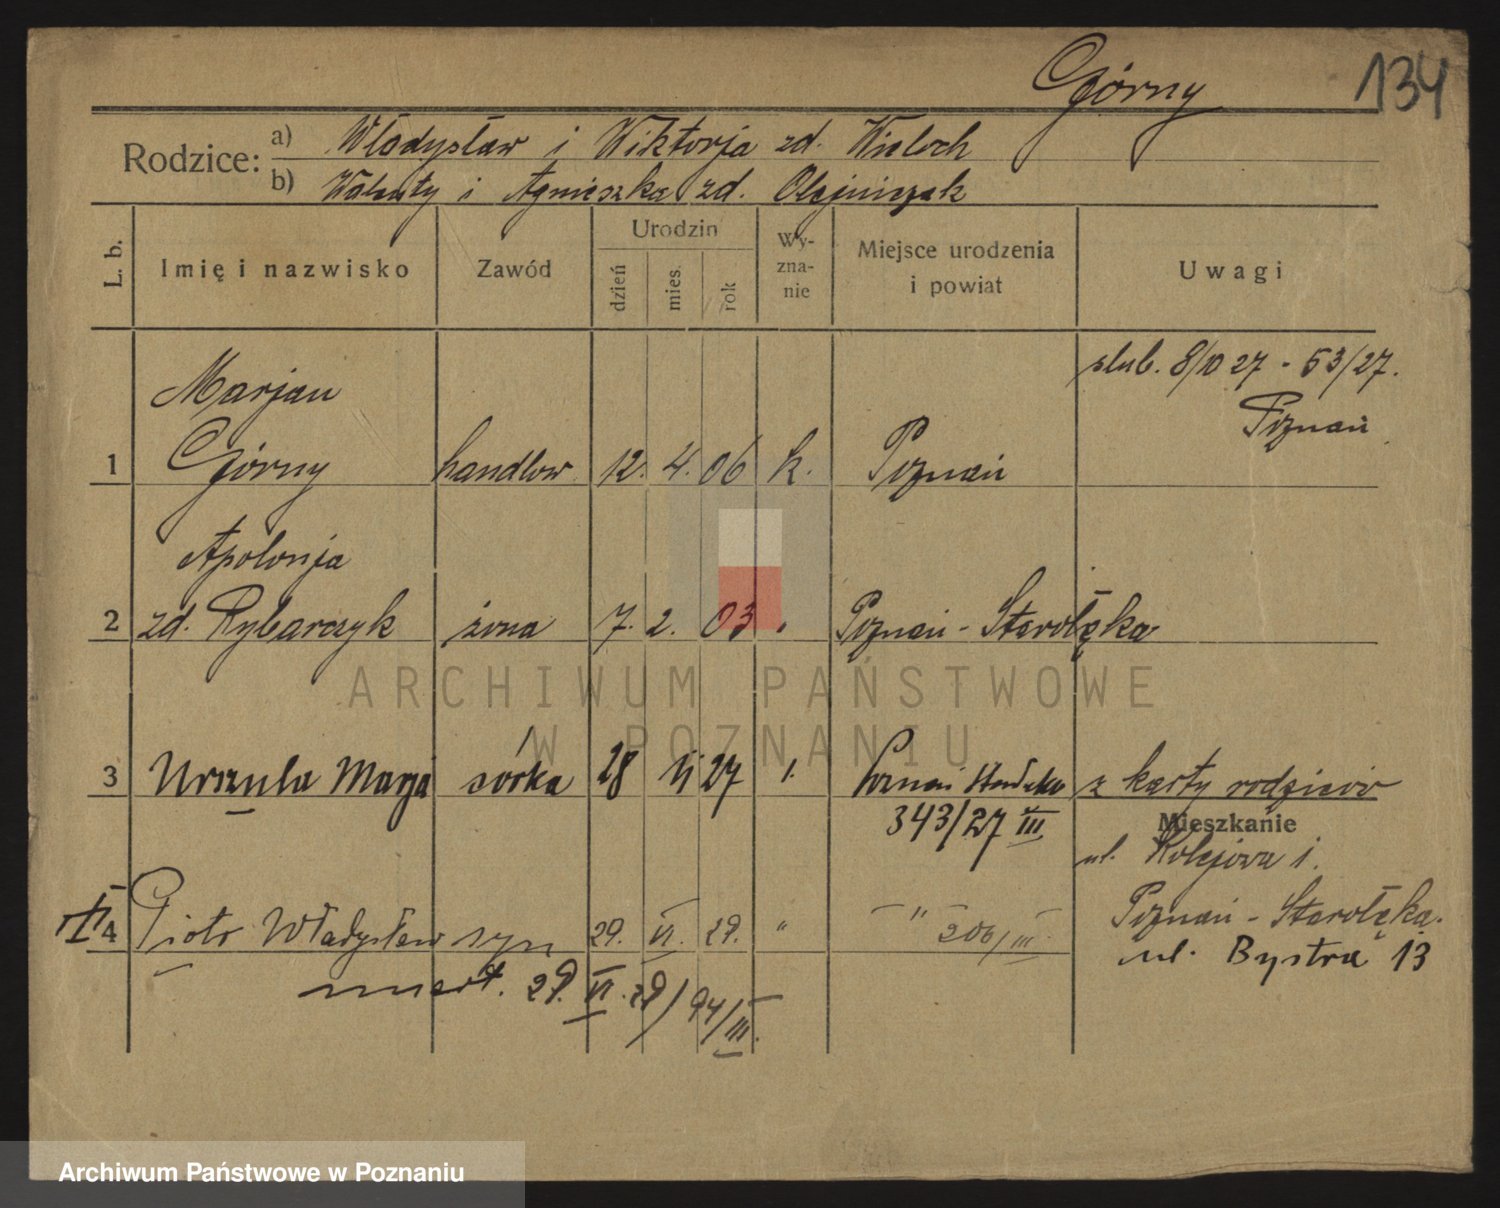 Górny 134
Rodzice: a) Władysław i Wiktorja zd. Wieloch
b) Walenty i Agnieszka zd. Olejniczak
L. b. Imię i nazwisko Zawód Urodzin dzień mies. rok Wy-zna-nie Miejsce urodzenia i powiat Uwagi
ślub. 8/10 27 - 53/27.
Poznań
Marjan
1 Górny handlow. 12. 4. 06 k. Poznań
Apolonja
2 zd. Rybarczyk żona 7. 2. 03 " Poznań - Starołęka
3 Urszula Marja córka 28 VI 27 Poznań Starołęka z karty rodziców
343/27 III
Mieszkanie
ul. Kolejowa 1.
Poznań - Starołęka.
4 Piotr Władysław syn 29. VI. 29. " — " — 206/III
ul. Bystra 13
zmarł. 29. VI. 29/ 94/III.
ARCHIWUM PAŃSTWOWE
W POZNANIU
Archiwum Państwowe w Poznaniu